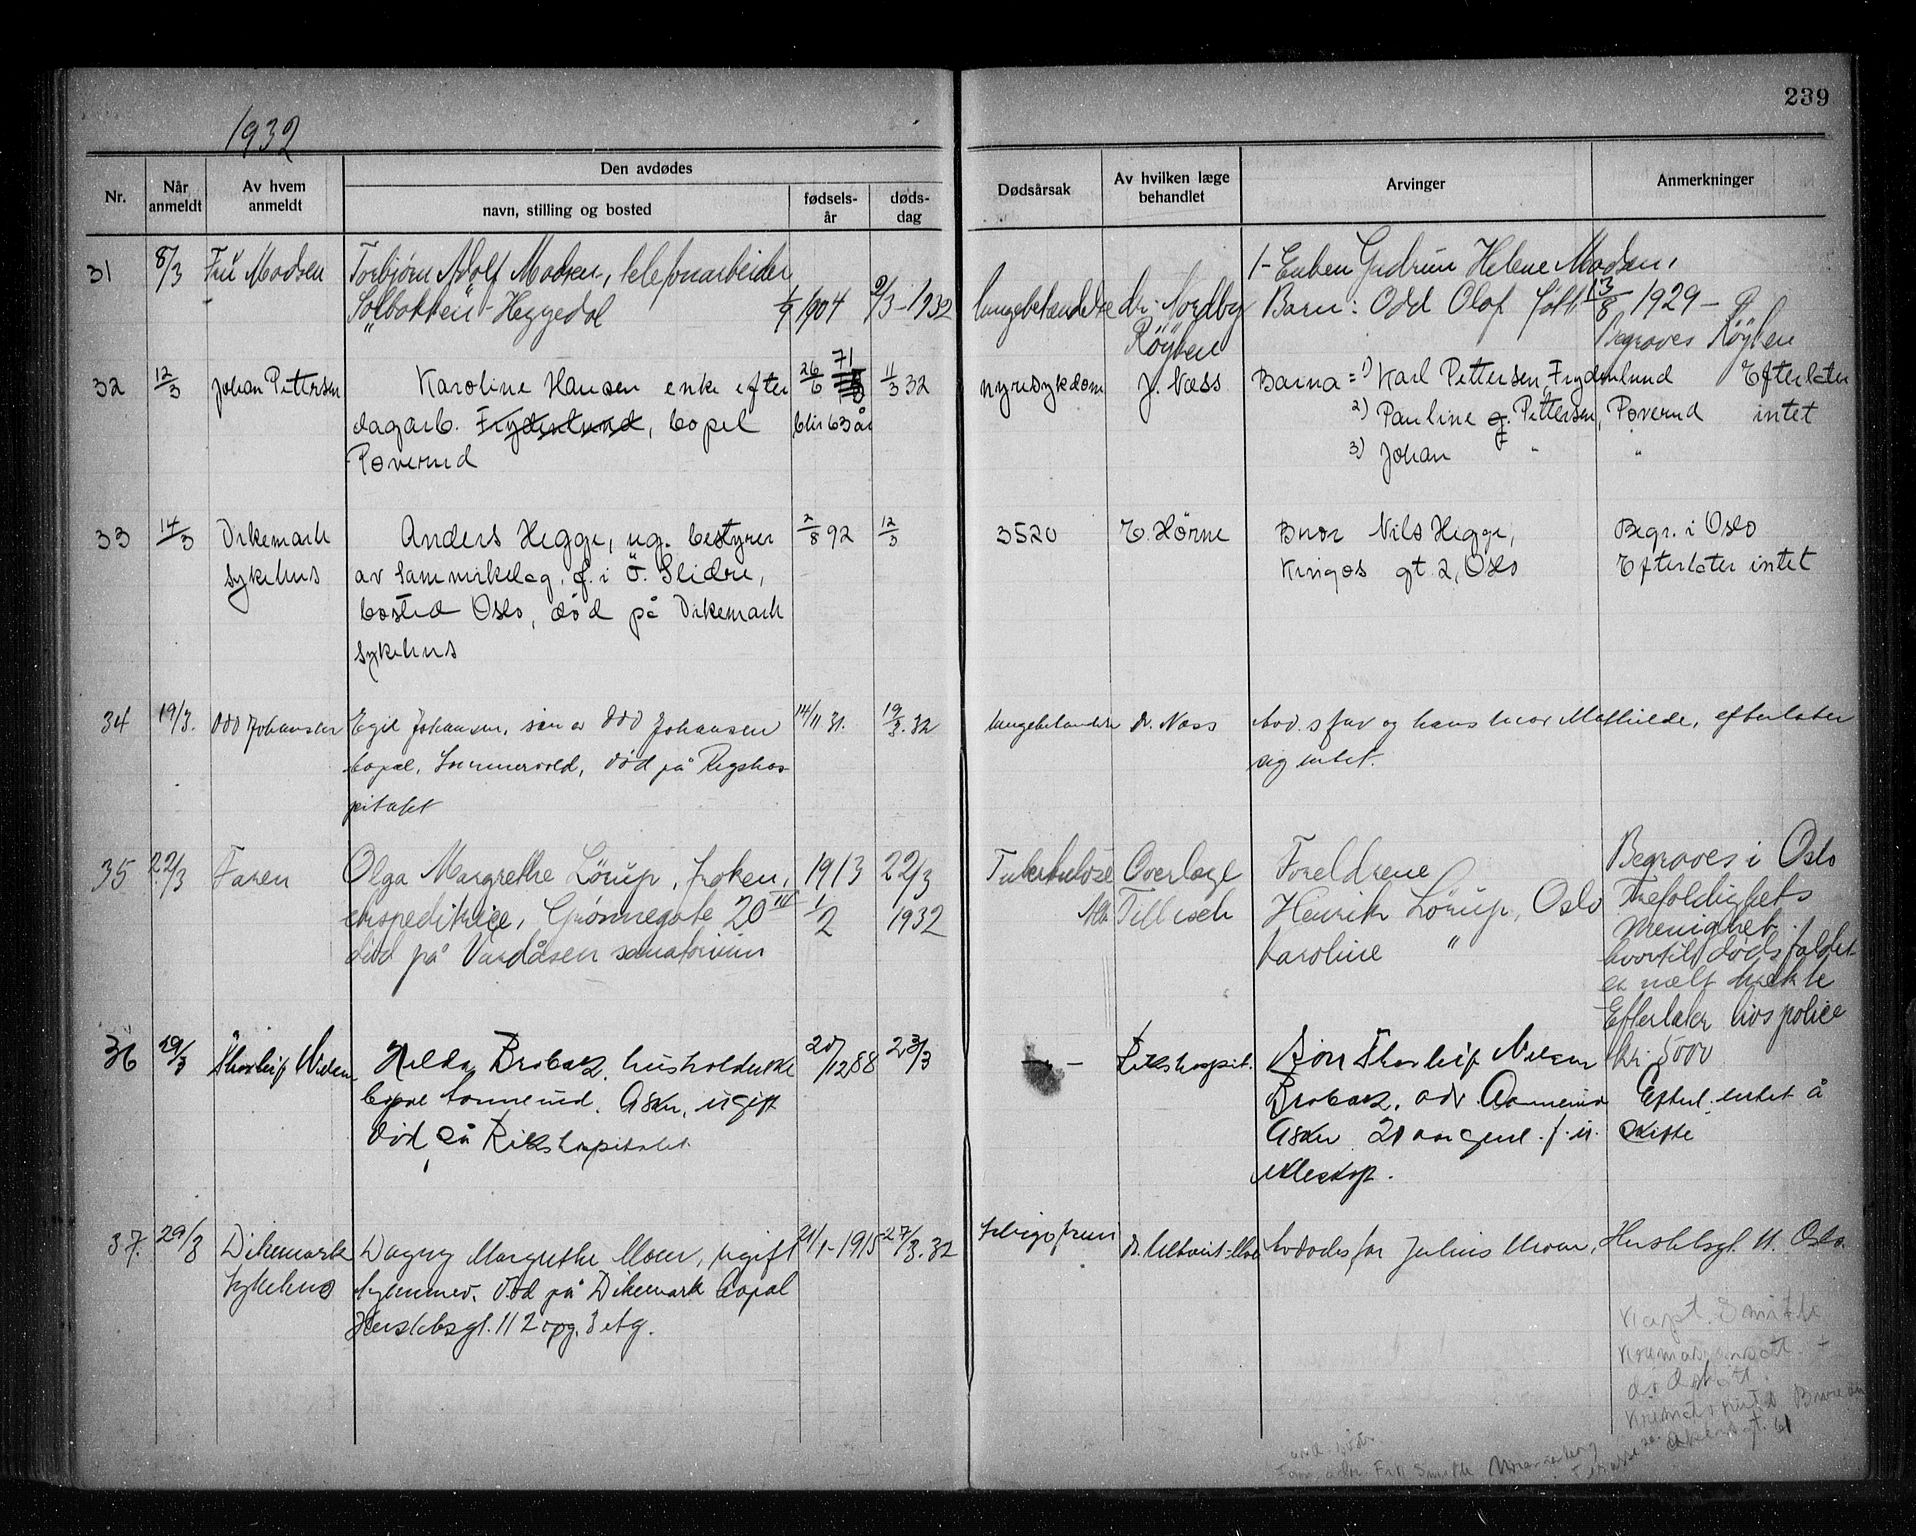 239
1932
Nr.
Når anmeldt
Av hvem anmeldt
Den avdødes
navn, stilling og bosted
fødsels-år
døds-dag
Dødsårsak
Av hvilken læge behandlet
Arvinger
Anmerkninger
31 8/3 Fru Madsen
Torbjørn Adolf Madsen, telefonarbeider
"Solbakken" - Heggedal
1904 9/3-1932
lungebetændelse dr. Nordby
Røyken
1- Enken Gudrun Helene Madsen,
Barn: Odd Olaf født 13/8 1929 -
Begraves Røyken
32 12/3 Johan Pettersen
Karoline Hansen enke efter
dagarb. Frydenlund, bopel
Poverud
26/6 71
blir 63 år
11/3 32
nyresykdom J. Næss
Barna = 1) Karl Pettersen, Frydenlund
2) Pauline g. Pettersen, Poverud
3) Johan " "
Efterlater
intet
33 14/3 Dikemark
sykehus
Anders Hegge, ug. bestyrer
av samvirkelag, f. i Ö. Slidre,
bosted Oslo, død på Dikemark
sykehus
2/8 92 12/3
3520 E. Hörne
Bror Nils Hegge,
Kingos gt 2, Oslo
Begr. i Oslo
Efterlater intet
34 19/3. Odd Johansen
Egil Johansen, søn av Odd Johansen
bopæl, Sommervold, død på Rigshos-
pitalet
14/11 31. 19/3. 32
lungebetændelse dr. Næss
Avd.s far og hans mor Mathilde, efterlater
sig intet.
35 22/3 Faren
Olga Margrethe Lörup, frøken,
ekspeditrice, Grönnegate 20 III
död på Vardåsen sanatorium
1913
1/2
22/3
1932
Tuberkulose Overlæge
Tillisch
Foreldrene
Henrik Lörup, Oslo
Karoline "
Begraves i Oslo
Trefoldighets
Menighet
hvortil dödsfaldet
er melt direkte
Efterlater hos police
kr. 5000
36 29/3 Thorleif Nielsen
Hilda Brobak, husholderske
bopæl Aamerud. Asker, ugift
Død på Rikshospitalet
20/12 88 23/3
- Rikshospit.
Sön Thorleif Nilsen
Brobak, adr. Aamerud
Asker 20 aar gml. f. u.
ekteskap.
Efterl. intet å
skifte
37. 29/3 Dikemark
Sykehus
Dagny Margrethe Moen, ugift
hjemmev. Død på Dikemark bopæl
Herslebsgt. 11 2 opg. 3 etg.
21/1-1915 27/3.32
Avdødes far Julius Moen, Herslebsgt. 11. Oslo.
Kapt. Smith
Akersgt. 61